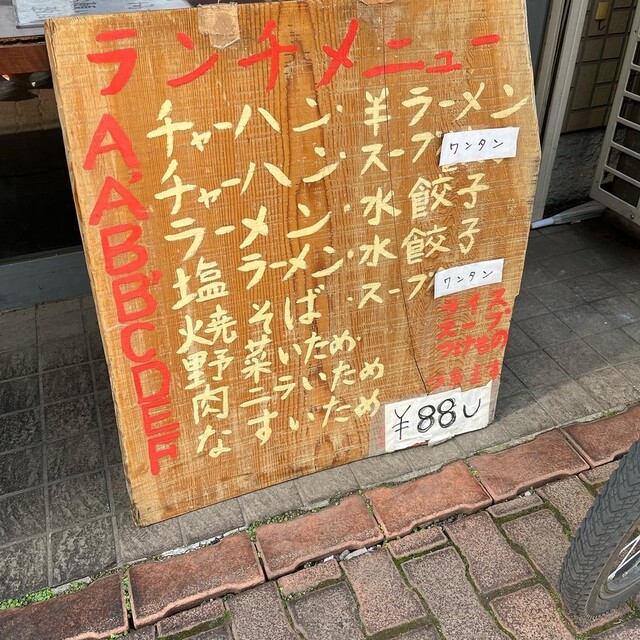 ランチメニュー
A チャーハン・半ラーメン
A' チャーハン・スープワンタン
B ラーメン・水餃子
B' 塩ラーメン・水餃子
C 焼そば・スープワンタン
D 野菜いため
E 肉ニラいため
F なすいため
ライス
スープ
つけもの
つきます
¥880